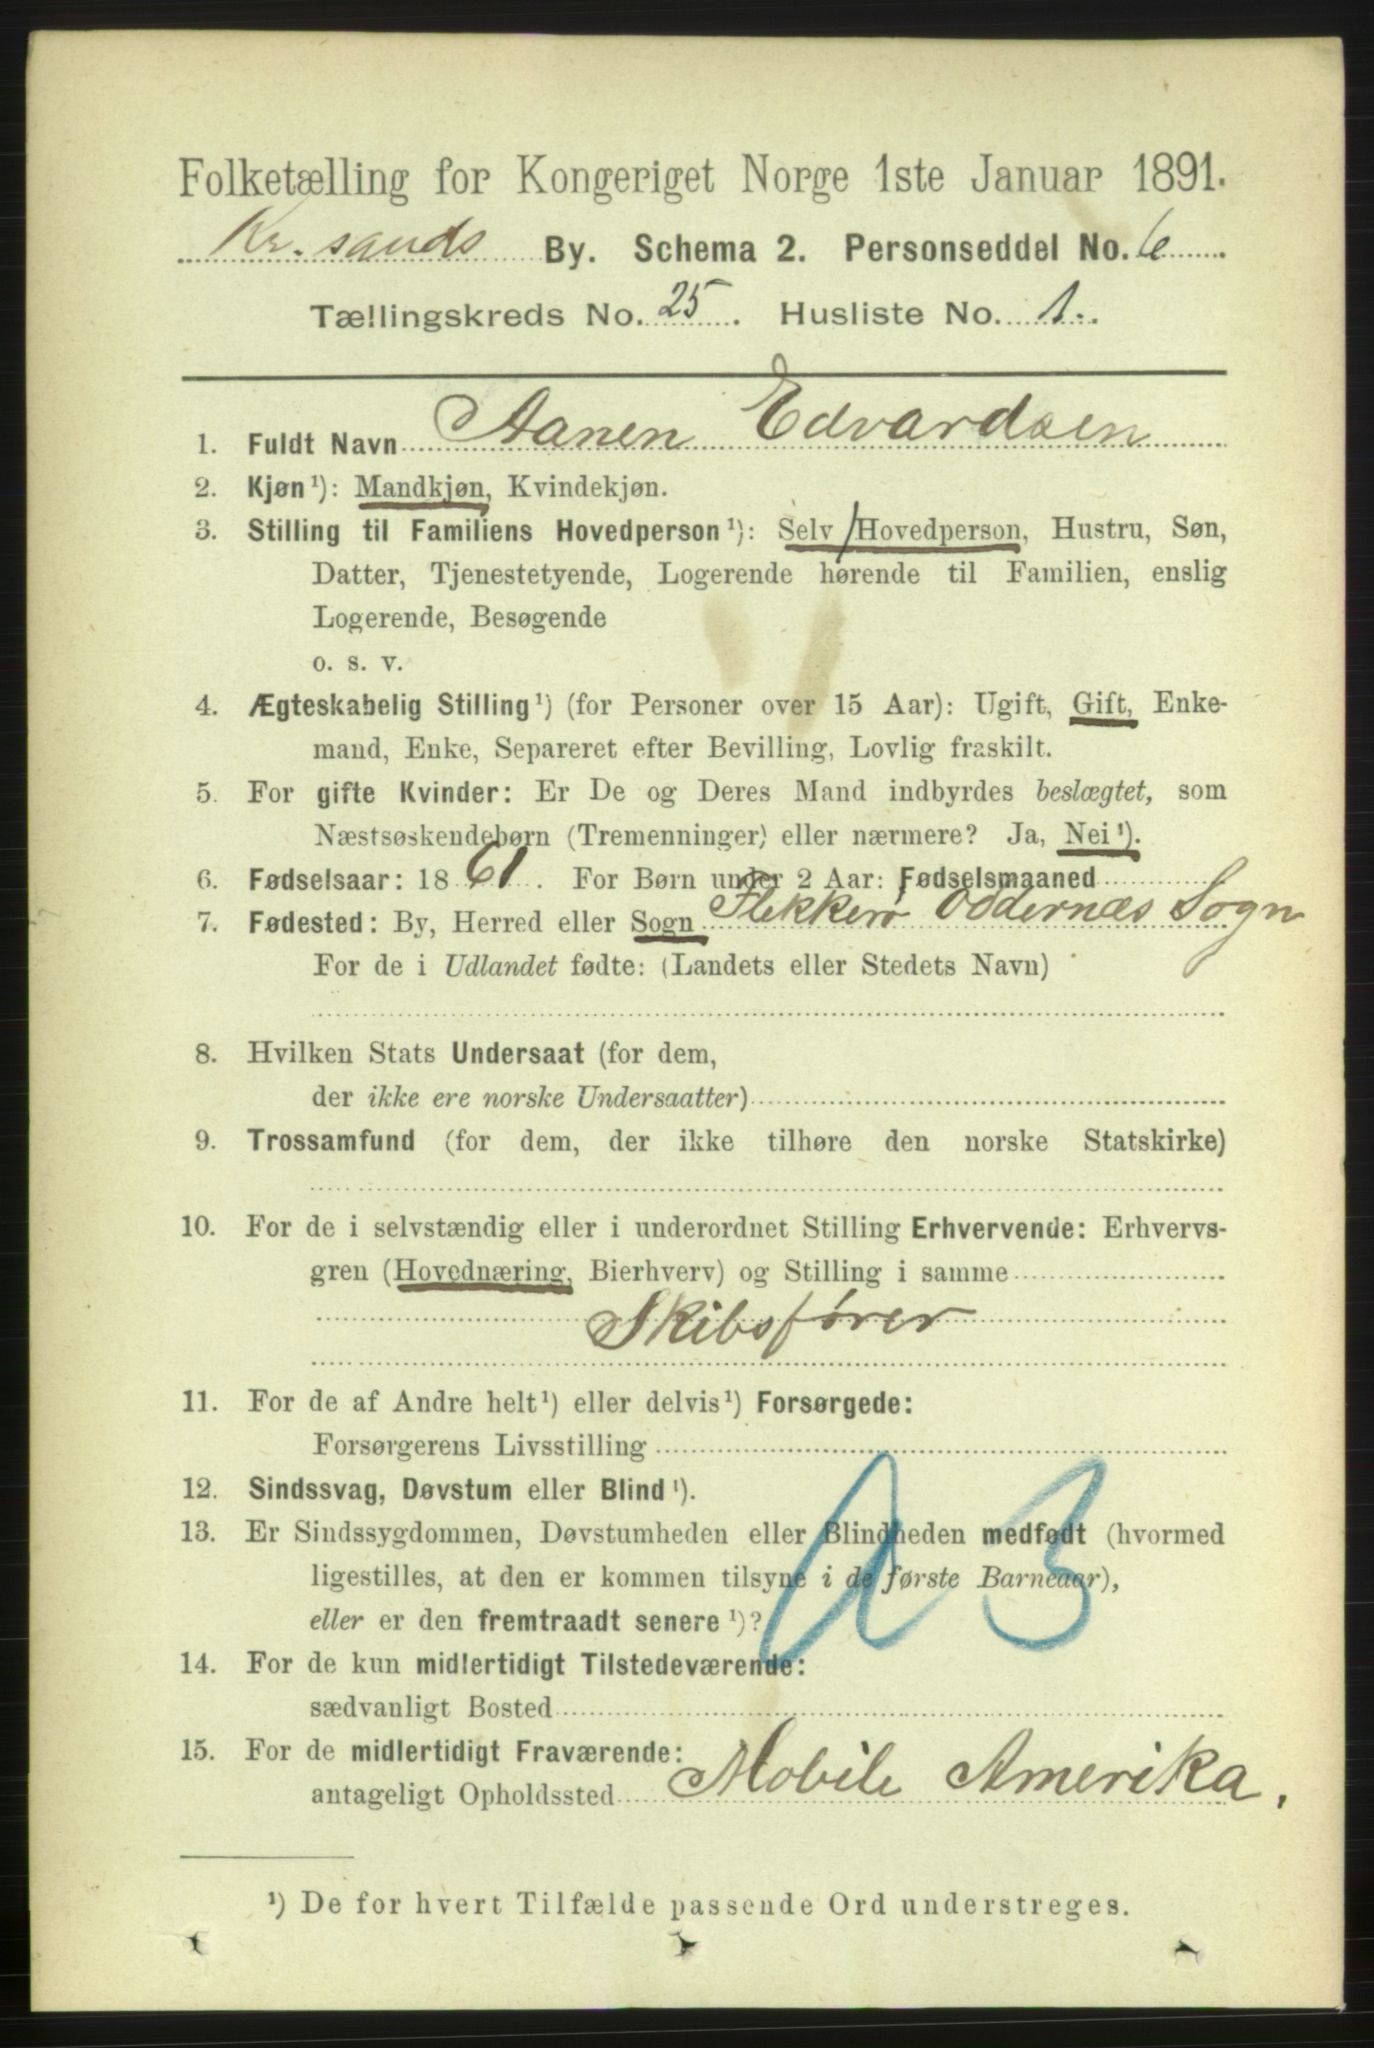 Folketælling for Kongeriget Norge 1ste Januar 1891.
Kr.sands By. Schema 2. Personseddel No. 6
Tællingskreds No. 25. Husliste No. 1.
1. Fuldt Navn Aanen Edvardsen
2. Kjøn¹): Mandkjøn, Kvindekjøn.
3. Stilling til Familiens Hovedperson¹): Selv/Hovedperson, Hustru, Søn,
Datter, Tjenestetyende, Logerende hørende til Familien, enslig
Logerende, Besøgende
o. s. v.
4. Ægteskabelig Stilling¹) (for Personer over 15 Aar): Ugift, Gift, Enke-
mand, Enke, Separeret efter Bevilling, Lovlig fraskilt.
5. For gifte Kvinder: Er De og Deres Mand indbyrdes beslægtet, som
Næstsøskendebørn (Tremenninger) eller nærmere? Ja, Nei¹).
6. Fødselsaar: 1861. For Børn under 2 Aar: Fødselsmaaned
7. Fødested: By, Herred eller Sogn Flekkerø Oddernæs Sogn
For de i Udlandet fødte: (Landets eller Stedets Navn)
8. Hvilken Stats Undersaat (for dem,
der ikke ere norske Undersaatter)
9. Trossamfund (for dem, der ikke tilhøre den norske Statskirke)
10. For de i selvstændig eller i underordnet Stilling Erhvervende: Erhvervs-
gren (Hovednæring, Bierhverv) og Stilling i samme
Skibsfører
11. For de af Andre helt¹) eller delvis¹) Forsørgede:
Forsørgerens Livsstilling
12. Sindssvag, Døvstum eller Blind¹).
13. Er Sindssygdommen, Døvstumheden eller Blindheden medfødt (hvormed
ligestilles, at den er kommen tilsyne i de første Barneaar),
eller er den fremtraadt senere¹)?
14. For de kun midlertidigt Tilstedeværende:
sædvanligt Bosted
15. For de midlertidigt Fraværende:
antageligt Opholdssted Mobile Amerika.
¹) De for hvert Tilfælde passende Ord understreges.